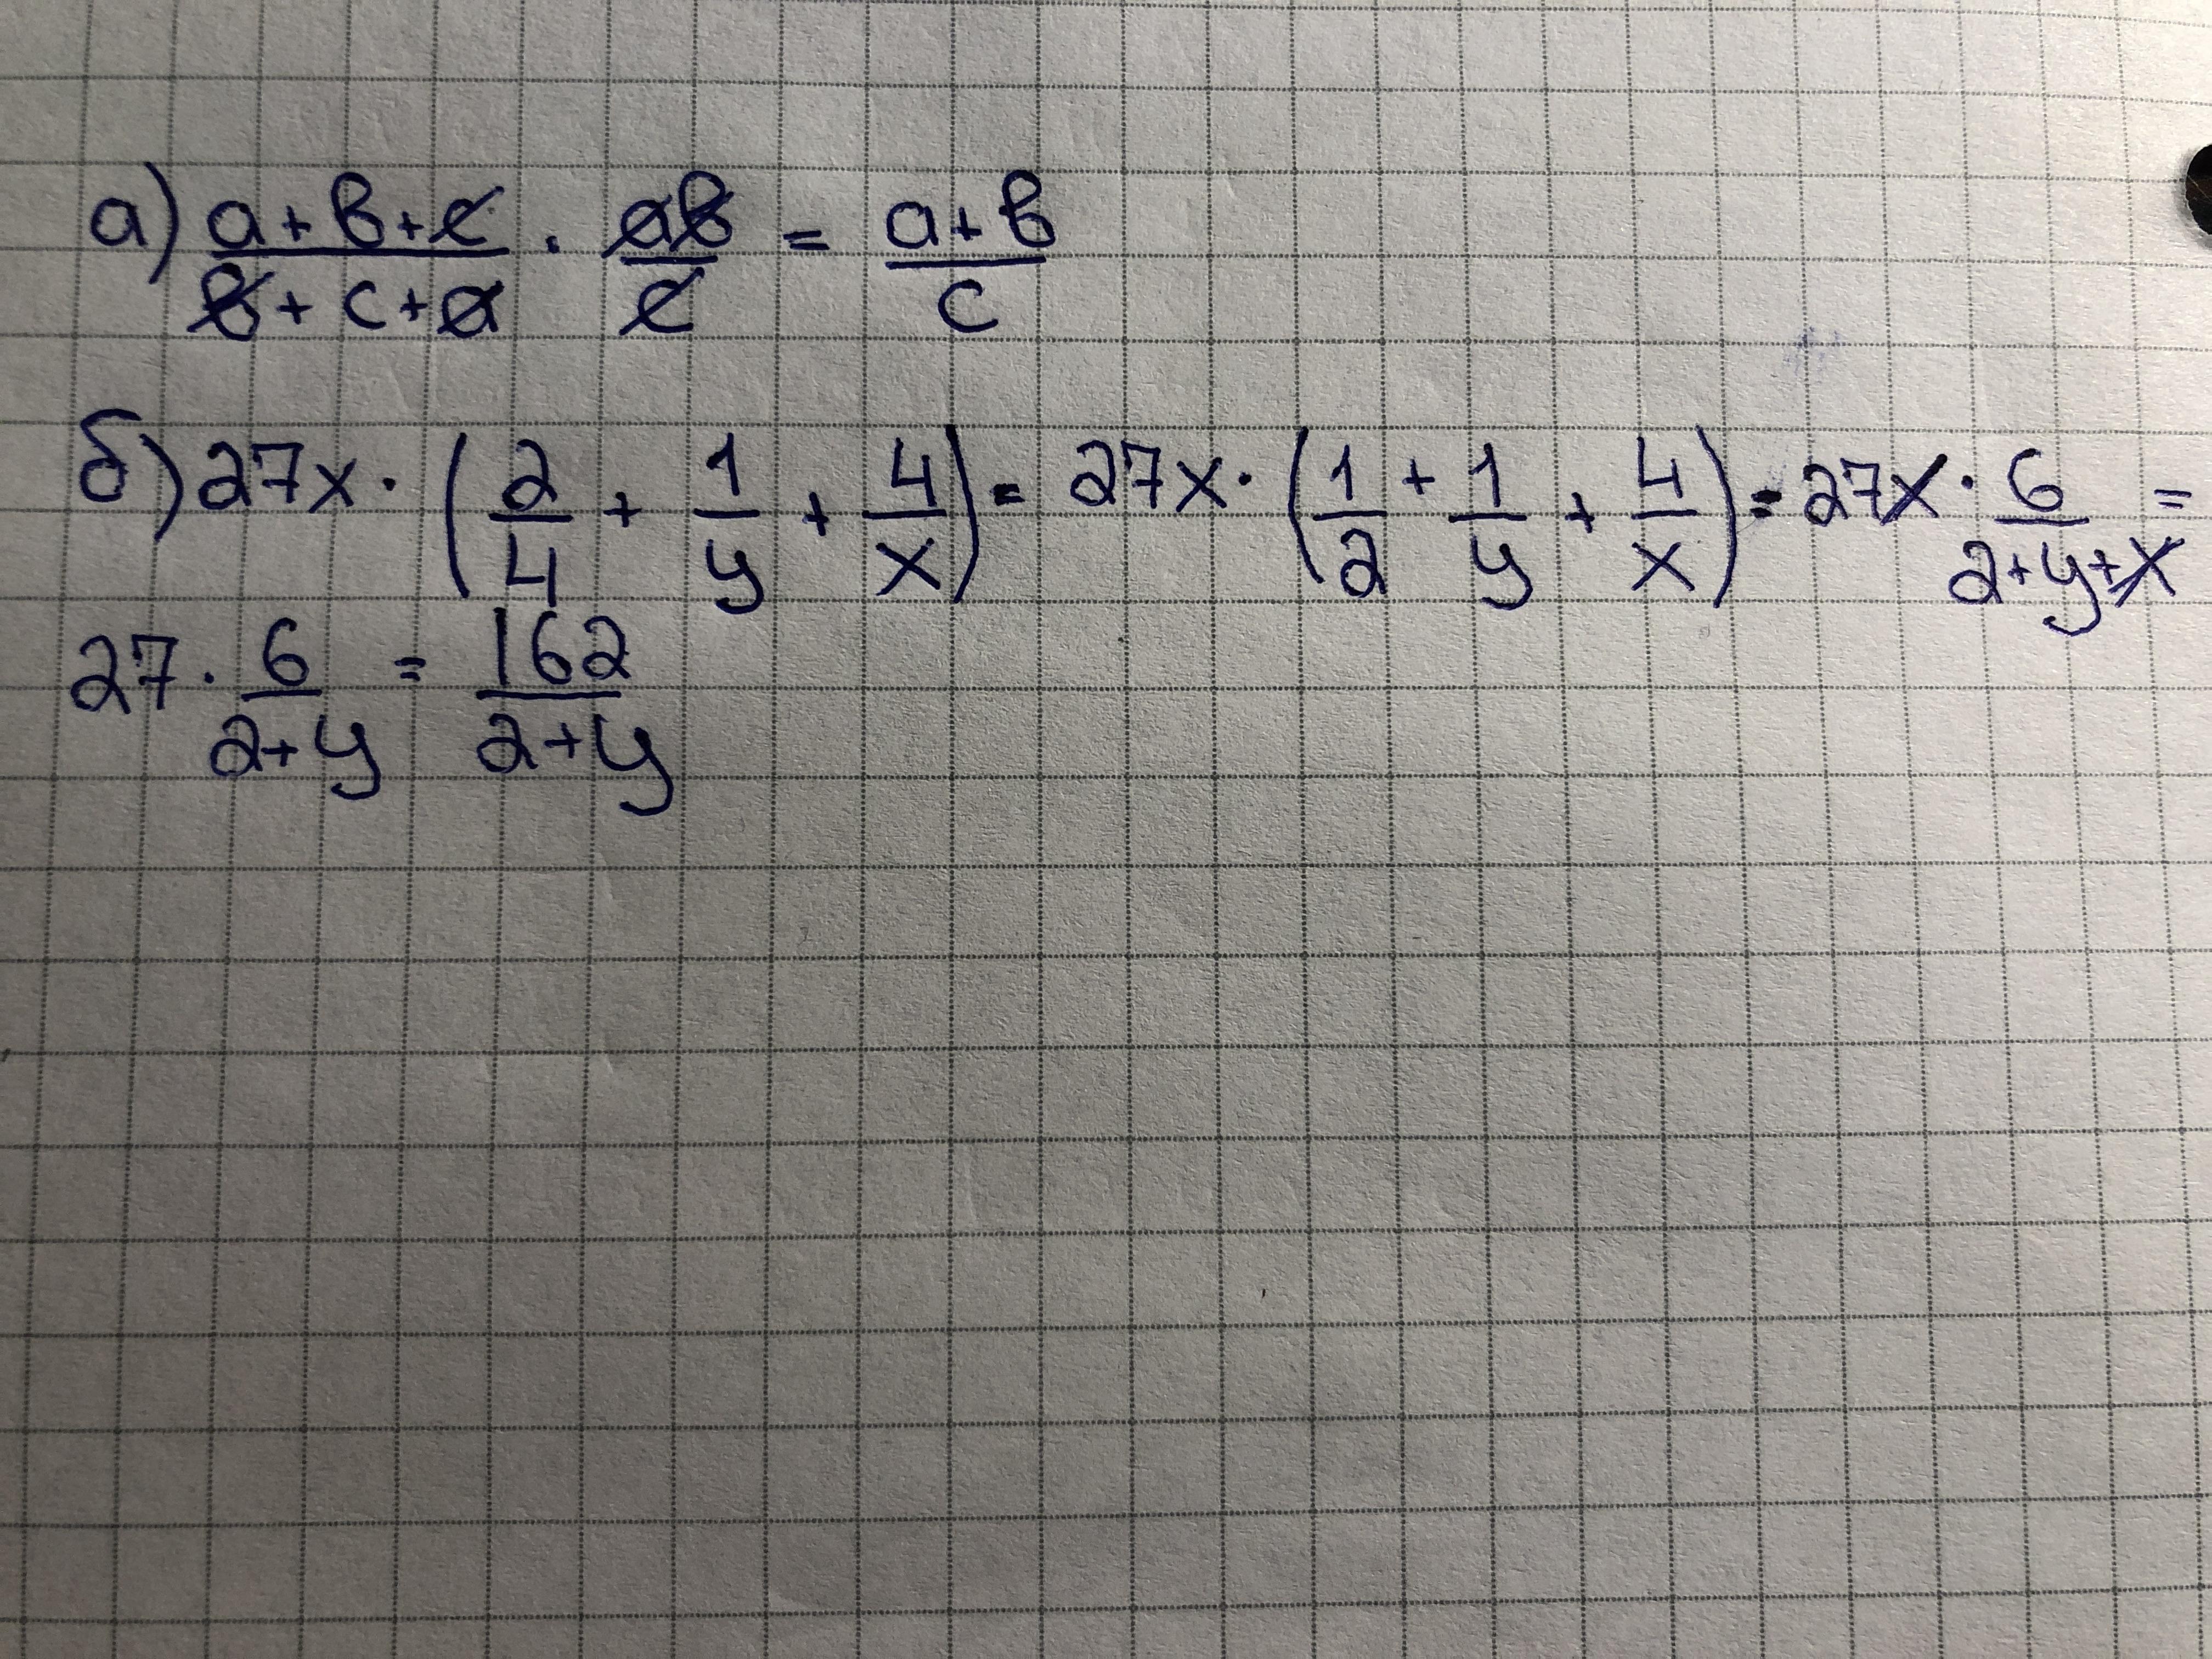 а) (a + b + c)/(b + c + a) · ab/c = (a + b)/c
б) 27x · (2/4 + 1/y + 4/x) = 27x · (1/2 + 1/y + 4/x) = 27x · 6/(2+y+x) =
27 · 6/(2+y) = 162/(2+y)